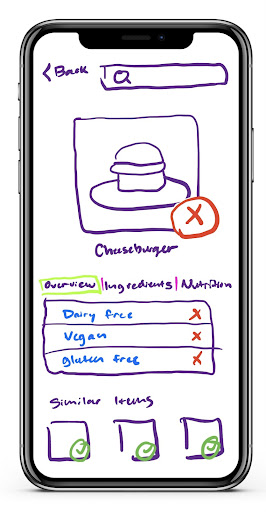 < Back
Cheeseburger
Overview | Ingredients | Nutrition
Dairy free X
Vegan X
gluten free X
Similar Items